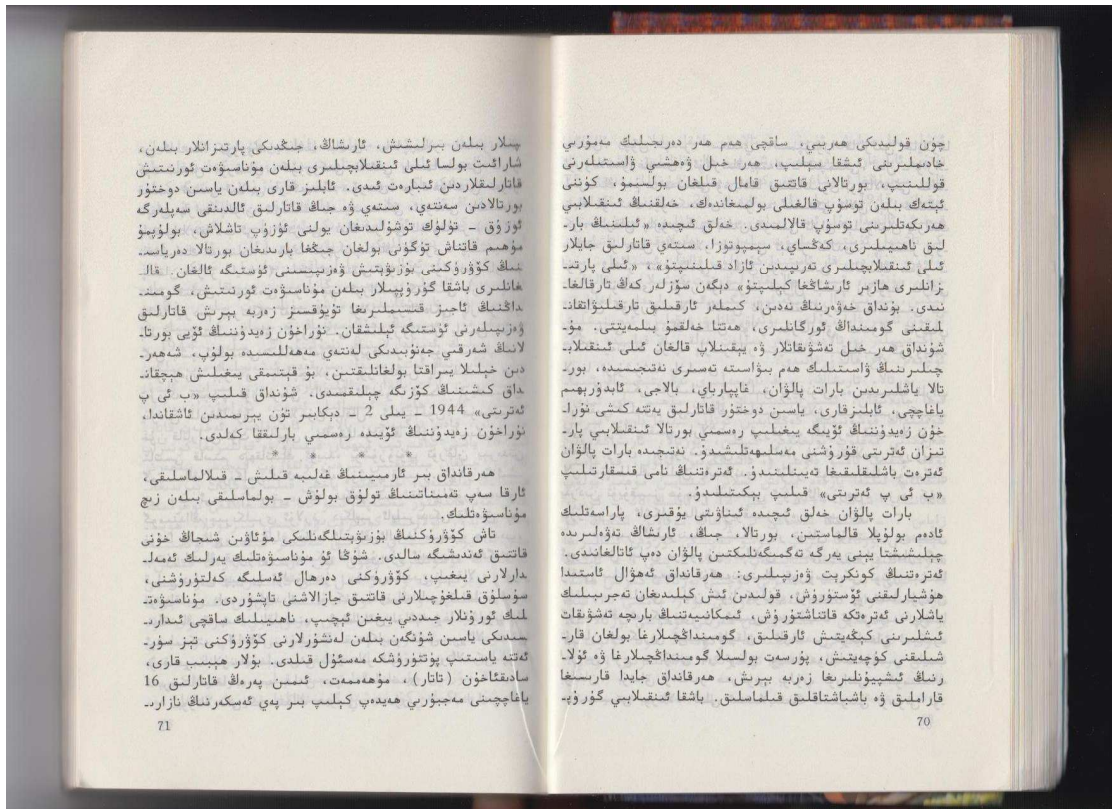 چۈن قولىدىكى ھەربىي، ساقچى ھەم ھەر دەرىجىلىك مەمۇرىي
خادىملىرىنى ئىشقا سېلىپ، ھەر خىل ۋەھشىي ۋاسىتىلەرنى
قوللىنىپ، بورتالانى قاتتىق قامال قىلغان بولسىمۇ، كۈننى
ئېتەك بىلەن توسۇپ قالغىلى بولمىغاندەك، خەلقنىڭ ئىنقىلابىي
ھەرىكەتلىرىنى توسۇپ قالالمىدى. خەلق ئىچىدە «ئىلىنىڭ بار-
لىق ناھىيىلىرى، كەڭساي، سىمپوتوزا، سىتەي قاتارلىق جايلار
ئىلى ئىنقىلابچىلىرى تەرىپىدىن ئازاد قىلىنىپتۇ»، «ئىلى پارتى-
زانلىرى ھازىر ئارىشاڭغا كېلىپتۇ» دېگەن سۆزلەر كەڭ تارقالغا-
نىدى. بۇنداق خەۋەرنىڭ نەدىن، كىملەر ئارقىلىق تارقىلىۋاتقان-
لىقىنى گومىنداڭ ئورگانلىرى، ھەتتا خەلقمۇ بىلمەيتتى. مۇ-
شۇنداق ھەر خىل تەشۋىقاتلار ۋە يېقىنلاپ قالغان ئىلى ئىنقىلاب-
چىلىرىنىڭ ۋاسىتىلىك ھەم بىۋاسىتە تەسىرى نەتىجىسىدە، بور-
تالا ياشلىرىدىن بارات پالۋان، غاپپارباي، بالاجى، ئابدۇرېھىم
ياغاچچى، ئابلىزقارى، ياسىن دوختۇر قاتارلىق يەتتە كىشى نۇرا-
خۇن زەيدۇننىڭ ئۆيىگە يىغىلىپ رەسمىي بورتالا ئىنقىلابىي پار-
تىزان ئەترىتى قۇرۇشنى مەسلىھەتلىشىدۇ. نەتىجىدە بارات پالۋان
ئەترەت باشلىقلىقىغا تەيىنلىنىدۇ. ئەترەتنىڭ نامى قىسقارتىلىپ
«ب ئى پ ئەترىتى» قىلىپ بېكىتىلىدۇ.
بارات پالۋان خەلق ئىچىدە ئىناۋىتى يۇقىرى، پاراسەتلىك
ئادەم بولۇپلا قالماستىن، بورتالا، جىڭ، ئارىشاڭ تەۋەلىرىدە
چېلىشىشتا يېنى يەرگە تەگمىگەنلىكتىن پالۋان دەپ ئاتالغانىدى.
ئەترەتنىڭ كونكرېت ۋەزىپىلىرى: ھەرقانداق ئەھۋال ئاستىدا
ھۇشيارلىقنى ئۆستۈرۈش، قولىدىن ئىش كېلىدىغان تەجرىبىلىك
ياشلارنى ئەترەتكە قاتناشتۇرۇش، ئىمكانىيەتنىڭ بارىچە تەشۋىقات
ئىشلىرىنى كېڭەيتىش ئارقىلىق، گومىنداڭچىلارغا بولغان قار-
شىلىقنى كۈچەيتىش، پۇرسەت بولسىلا گومىنداڭچىلارغا ۋە ئۇلا-
رنىڭ ئىشپىيۇنلىرىغا زەربە بېرىش، ھەرقانداق جايدا قارىسىغا
قاراملىق ۋە باشباشتاقلىق قىلماسلىق. باشقا ئىنقىلابىي گۇرۇپ-
70
پىلار بىلەن بىرلىشىش، ئارىشاڭ، جىڭدىكى پارتىزانلار بىلەن،
شارائىت بولسا ئىلى ئىنقىلابچىلىرى بىلەن مۇناسىۋەت ئورنىتىش
قاتارلىقلاردىن ئىبارەت ئىدى. ئابلىز قارى بىلەن ياسىن دوختۇر
بورتالادىن سەنتەي، سىتەي ۋە جىڭ قاتارلىق ئالدىنقى سەپلەرگە
ئوزۇق - تۈلۈك توشۇلىدىغان يولنى ئۈزۈپ تاشلاش، بولۇپمۇ
مۇھىم قاتناش تۈگۈنى بولغان جىڭغا بارىدىغان بورتالا دەرياسى-
نىڭ كۆۋرۈكىنى بۇزىۋېتىش ۋەزىپىسىنى ئۈستىگە ئالغان. قال-
غانلىرى باشقا گۇرۇپپىلار بىلەن مۇناسىۋەت ئورنىتىش، گومىن-
داڭنىڭ ئاجىز قىسىملىرىغا تۇيۇقسىز زەربە بېرىش قاتارلىق
ۋەزىپىلەرنى ئۈستىگە ئېلىشقان. نۇراخۇن زەيدۇننىڭ ئۆيى بورتا-
لانىڭ شەرقىي جەنۇبىدىكى لەنتەي مەھەللىسىدە بولۇپ، شەھەر-
دىن خېلىلا يىراقتا بولغانلىقتىن، بۇ قېتىمقى يىغىلىش ھېچقان-
داق كىشىنىڭ كۆزىگە چېلىقمىدى. شۇنداق قىلىپ «ب ئى پ
ئەترىتى» 1944 - يىلى 2 - دېكابىر تۈن يېرىمىدىن ئاشقاندا،
نۇراخۇن زەيدۇننىڭ ئۆيىدە رەسمىي بارلىققا كەلدى.
* * * *
ھەرقانداق بىر ئارمىيىنىڭ غەلىبە قىلىش - قىلالماسلىقى،
ئارقا سەپ تەمىناتىنىڭ تولۇق بولۇش - بولماسلىقى بىلەن زىچ
مۇناسىۋەتلىك.
تاش كۆۋرۈكنىڭ بۇزىۋېتىلگەنلىكى مۇئاۋىن شىجاڭ خۇنى
قاتتىق ئەندىشىگە سالدى. شۇڭا ئۇ مۇناسىۋەتلىك يەرلىك ئەمەل-
دارلارنى يىغىپ، كۆۋرۈكنى دەرھال ئەسلىگە كەلتۈرۈشنى،
سۇسلۇق قىلغۇچىلارنى قاتتىق جازالاشنى تاپشۇردى. مۇناسىۋەت-
لىك ئورۇنلار جىددىي يىغىن ئېچىپ، ناھىيىلىك ساقچى ئىدارى-
سىدىكى ياسىن شۇنگەن بىلەن لەنشۇرلارنى كۆۋرۈكنى تېز سۈر-
ئەتتە ياسىتىپ پۈتتۈرۈشكە مەسئۇل قىلدى. بۇلار ھېبىب قارى،
سادىقئاخۇن (تاتار)، مۇھەممەت، ئىمىن پەرەڭ قاتارلىق 16
ياغاچچىنى مەجبۇرىي ھەيدەپ كېلىپ بىر پەي ئەسكەرنىڭ نازارى-
71